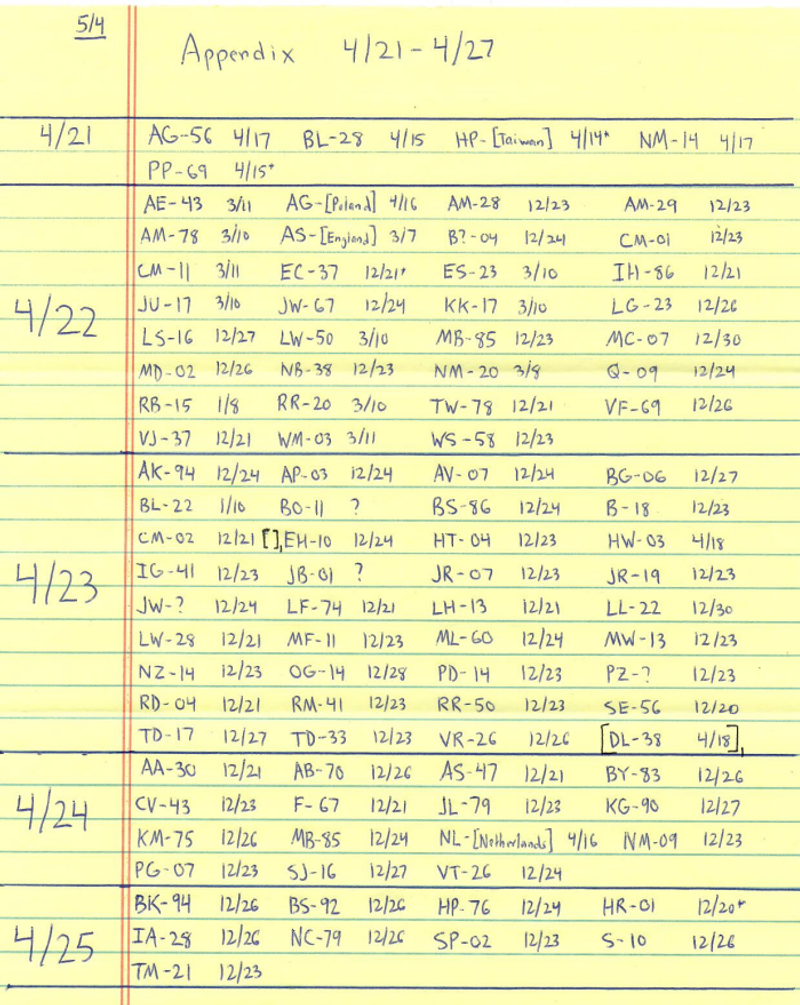 5/4
Appendix 4/21 - 4/27
4/21
AG-56 4/17 BL-28 4/15 HP-[Taiwan] 4/14* NM-14 4/17
PP-69 4/15*
4/22
AE-43 3/11 AG-[Poland] 4/16 AM-28 12/23 AM-29 12/23
AM-78 3/10 AS-[England] 3/7 B?-04 12/24 CM-01 12/23
CM-11 3/11 EC-37 12/21* ES-23 3/10 IH-86 12/21
JU-17 3/10 JW-67 12/24 KK-17 3/10 LG-23 12/26
LS-16 12/27 LW-50 3/10 MB-85 12/23 MC-07 12/30
MD-02 12/26 NB-38 12/23 NM-20 3/8 Q-09 12/24
RB-15 1/8 RR-20 3/10 TW-78 12/21 VF-69 12/26
VJ-37 12/21 WM-03 3/11 WS-58 12/23
4/23
AK-94 12/24 AP-03 12/24 AV-07 12/24 BG-06 12/27
BL-22 1/10 BO-11 ? BS-86 12/24 B-18 12/23
CM-02 12/21 [], EH-10 12/24 HT-04 12/23 HW-03 4/18
IG-41 12/23 JB-01 ? JR-07 12/23 JR-19 12/23
JW-? 12/24 LF-74 12/21 LH-13 12/21 LL-22 12/30
LW-28 12/21 MF-11 12/23 ML-60 12/24 MW-13 12/23
NZ-14 12/23 OG-14 12/28 PD-14 12/23 PZ-? 12/23
RD-04 12/21 RM-41 12/23 RR-50 12/23 SE-56 12/20
TD-17 12/27 TD-33 12/23 VR-26 12/26 [DL-38 4/18],
4/24
AA-30 12/21 AB-70 12/26 AS-47 12/21 BY-83 12/26
CV-43 12/23 F-67 12/21 JL-79 12/23 KG-90 12/27
KM-75 12/26 MB-85 12/24 NL-[Netherlands] 4/16 NM-09 12/23
PG-07 12/23 SJ-16 12/27 VT-26 12/24
4/25
BK-94 12/26 BS-92 12/26 HP-76 12/24 HR-01 12/20*
IA-28 12/26 NC-79 12/26 SP-02 12/23 S-10 12/26
TM-21 12/23